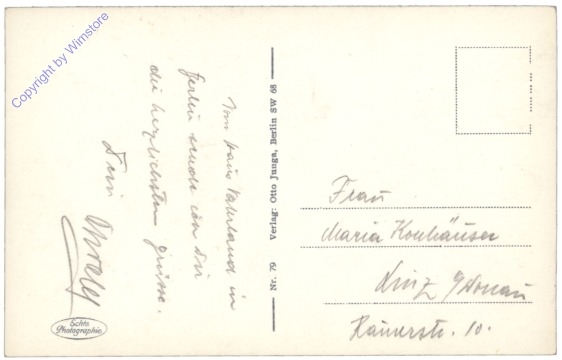 Copyright by Wimstore
Vom Haus Vaterland in
Berlin sende ich Dir
die herzlichsten Grüsse.
Dein
Echte
Photographie
Nr. 79 Verlag: Otto Junga, Berlin SW 68
Frau
Maria Kouhäuser
Linz a/Donau
Rainerstr. 10.